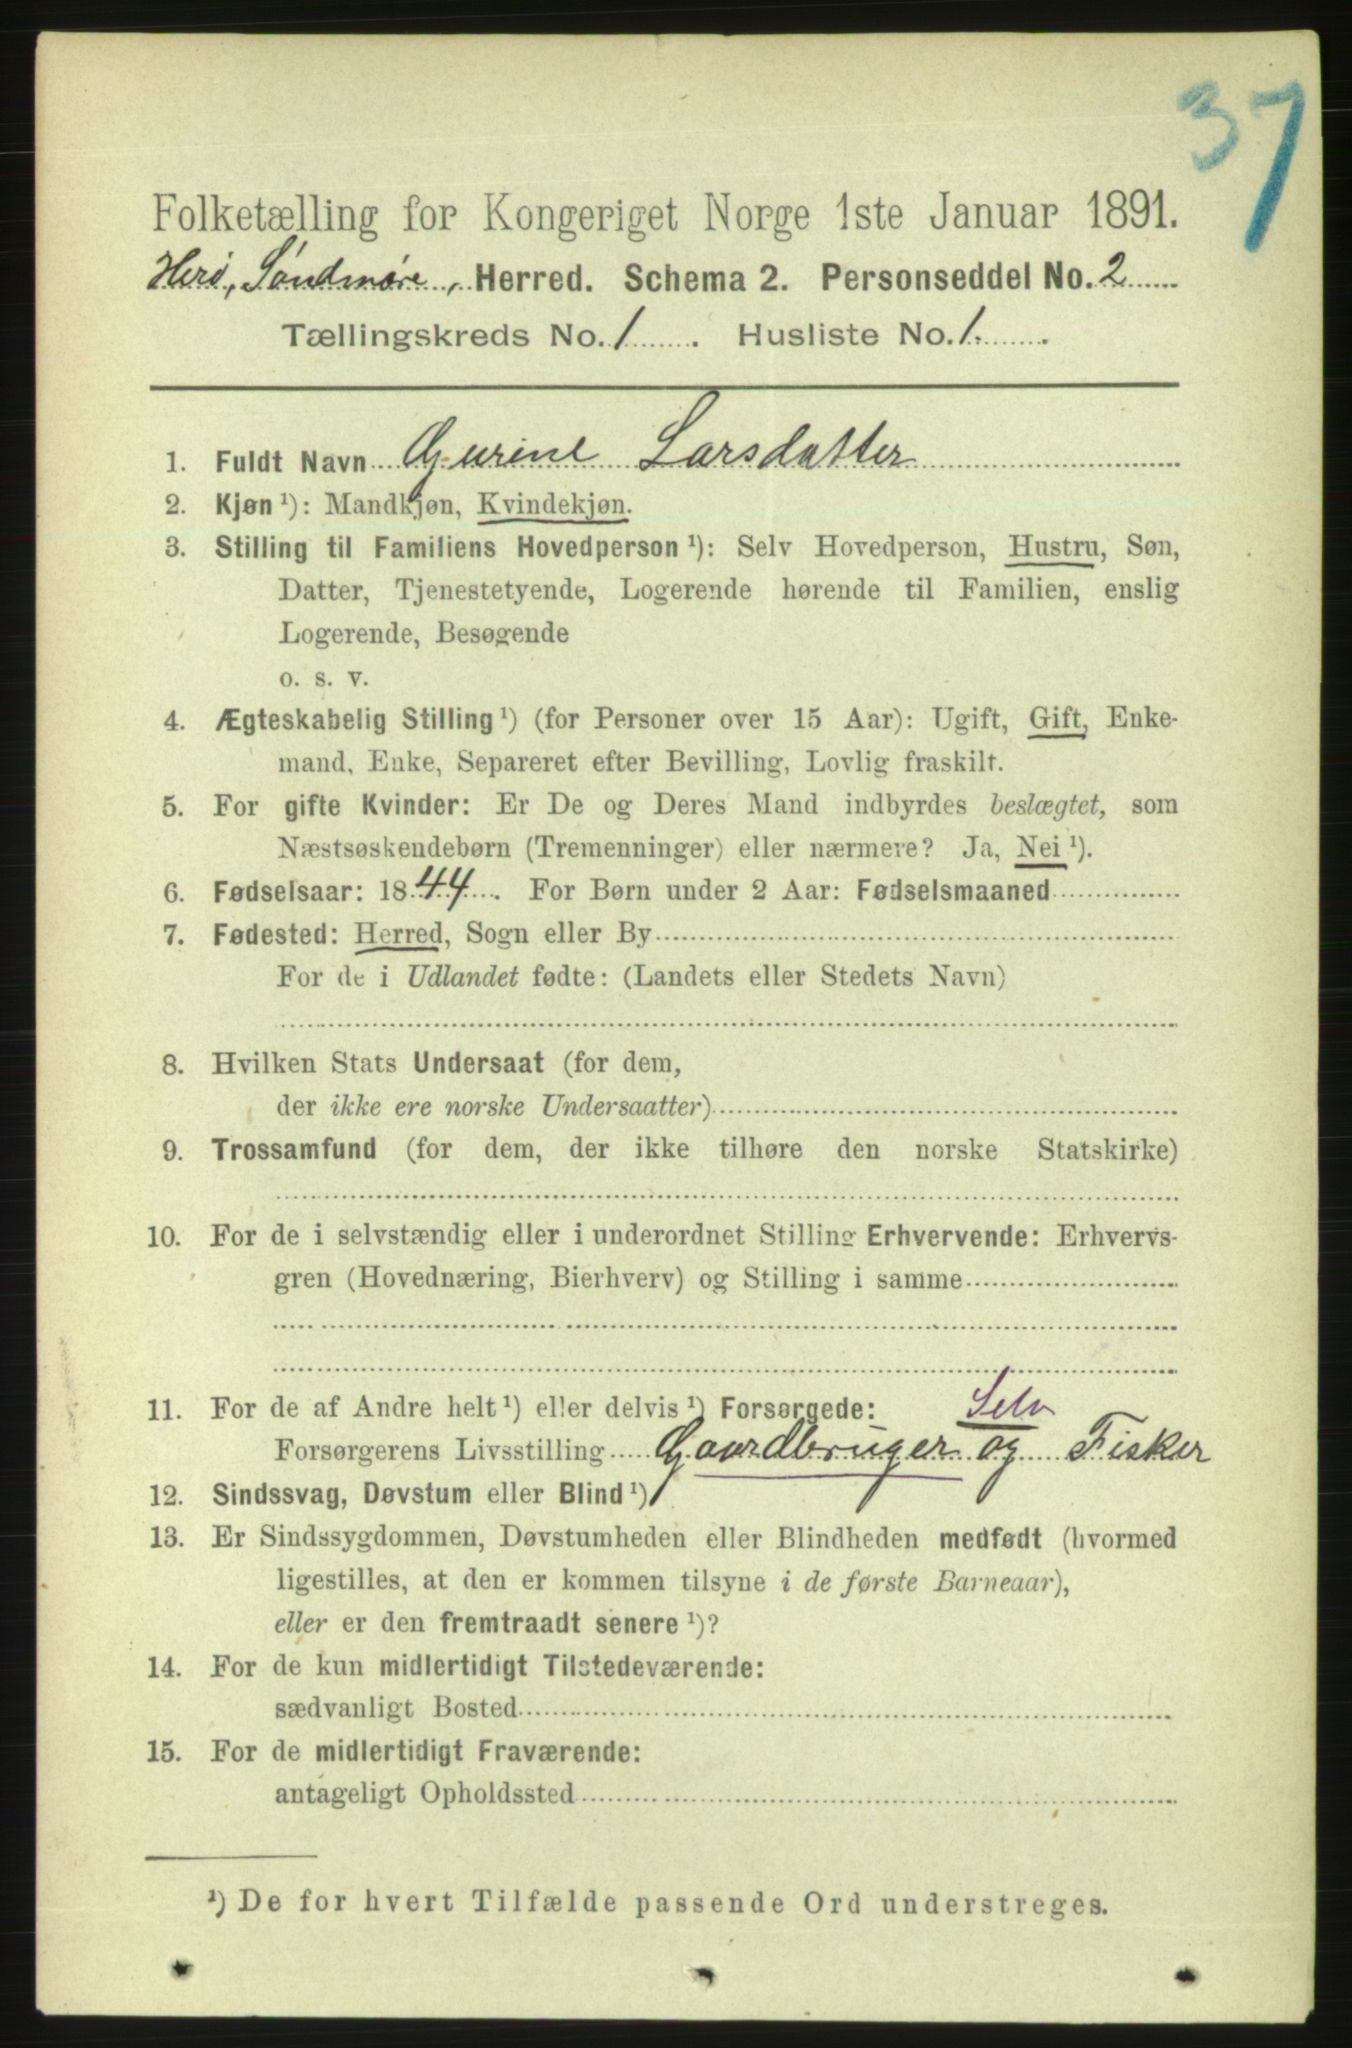 37
Folketælling for Kongeriget Norge 1ste Januar 1891.
Herö, Söndmøre, Herred. Schema 2. Personseddel No. 2
Tællingskreds No. 1. Husliste No. 1.
1. Fuldt Navn Gurine Larsdatter
2. Kjøn ¹): Mandkjøn, Kvindekjøn.
3. Stilling til Familiens Hovedperson ¹): Selv Hovedperson, Hustru, Søn,
Datter, Tjenestetyende, Logerende hørende til Familien, enslig
Logerende, Besøgende
o. s. v.
4. Ægteskabelig Stilling ¹) (for Personer over 15 Aar): Ugift, Gift, Enke-
mand, Enke, Separeret efter Bevilling, Lovlig fraskilt.
5. For gifte Kvinder: Er De og Deres Mand indbyrdes beslægtet, som
Næstsøskendebørn (Tremenninger) eller nærmere? Ja, Nei ¹).
6. Fødselsaar: 1844. For Børn under 2 Aar: Fødselsmaaned
7. Fødested: Herred, Sogn eller By
For de i Udlandet fødte: (Landets eller Stedets Navn)
8. Hvilken Stats Undersaat (for dem,
der ikke ere norske Undersaatter)
9. Trossamfund (for dem, der ikke tilhøre den norske Statskirke)
10. For de i selvstændig eller i underordnet Stilling Erhvervende: Erhvervs-
gren (Hovednæring, Bierhverv) og Stilling i samme
11. For de af Andre helt ¹) eller delvis ¹) Forsørgede: Selv
Forsørgerens Livsstilling Gaardbruger og Fisker
12. Sindssvag, Døvstum eller Blind ¹)
13. Er Sindssygdommen, Døvstumheden eller Blindheden medfødt (hvormed
ligestilles, at den er kommen tilsyne i de første Barneaar),
eller er den fremtraadt senere ¹)?
14. For de kun midlertidigt Tilstedeværende:
sædvanligt Bosted
15. For de midlertidigt Fraværende:
antageligt Opholdssted
¹) De for hvert Tilfælde passende Ord understreges.